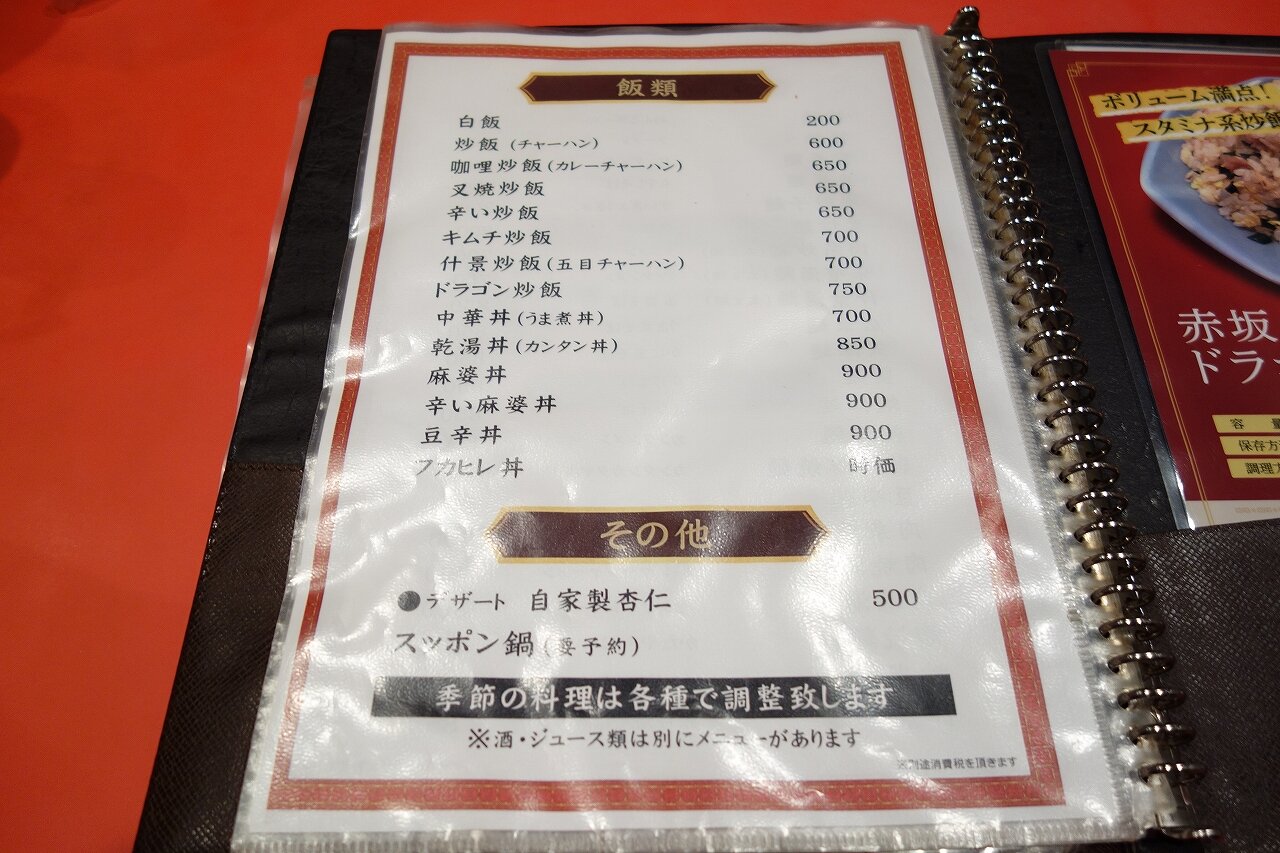 飯類
白飯 200
炒飯 (チャーハン) 600
咖哩炒飯(カレーチャーハン) 650
叉焼炒飯 650
辛い炒飯 650
キムチ炒飯 700
什景炒飯(五目チャーハン) 700
ドラゴン炒飯 750
中華丼(うま煮丼) 700
乾湯丼(カンタン丼) 850
麻婆丼 900
辛い麻婆丼 900
豆辛丼 900
フカヒレ丼 時価
その他
●デザート 自家製杏仁 500
スッポン鍋(要予約)
季節の料理は各種で調整致します
※酒・ジュース類は別にメニューがあります
※別途消費税を頂きます
ボリューム満点!
スタミナ系炒飯
赤坂
ドラ
容
保存方
調理方